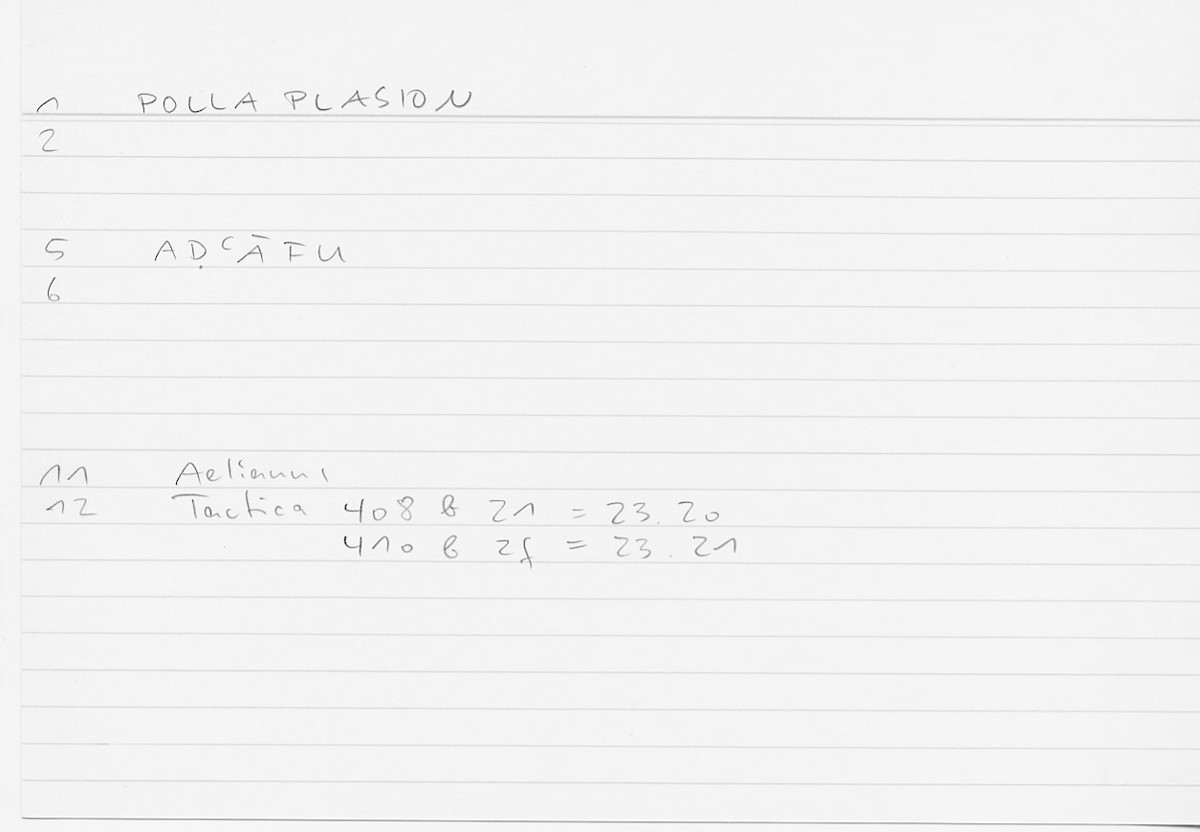 1 POLLA PLASION
2
5 AḌʿĀFU
6
11 Aelianus
12 Tactica 408 b 21 = 23.20
410 b 2f = 23.21